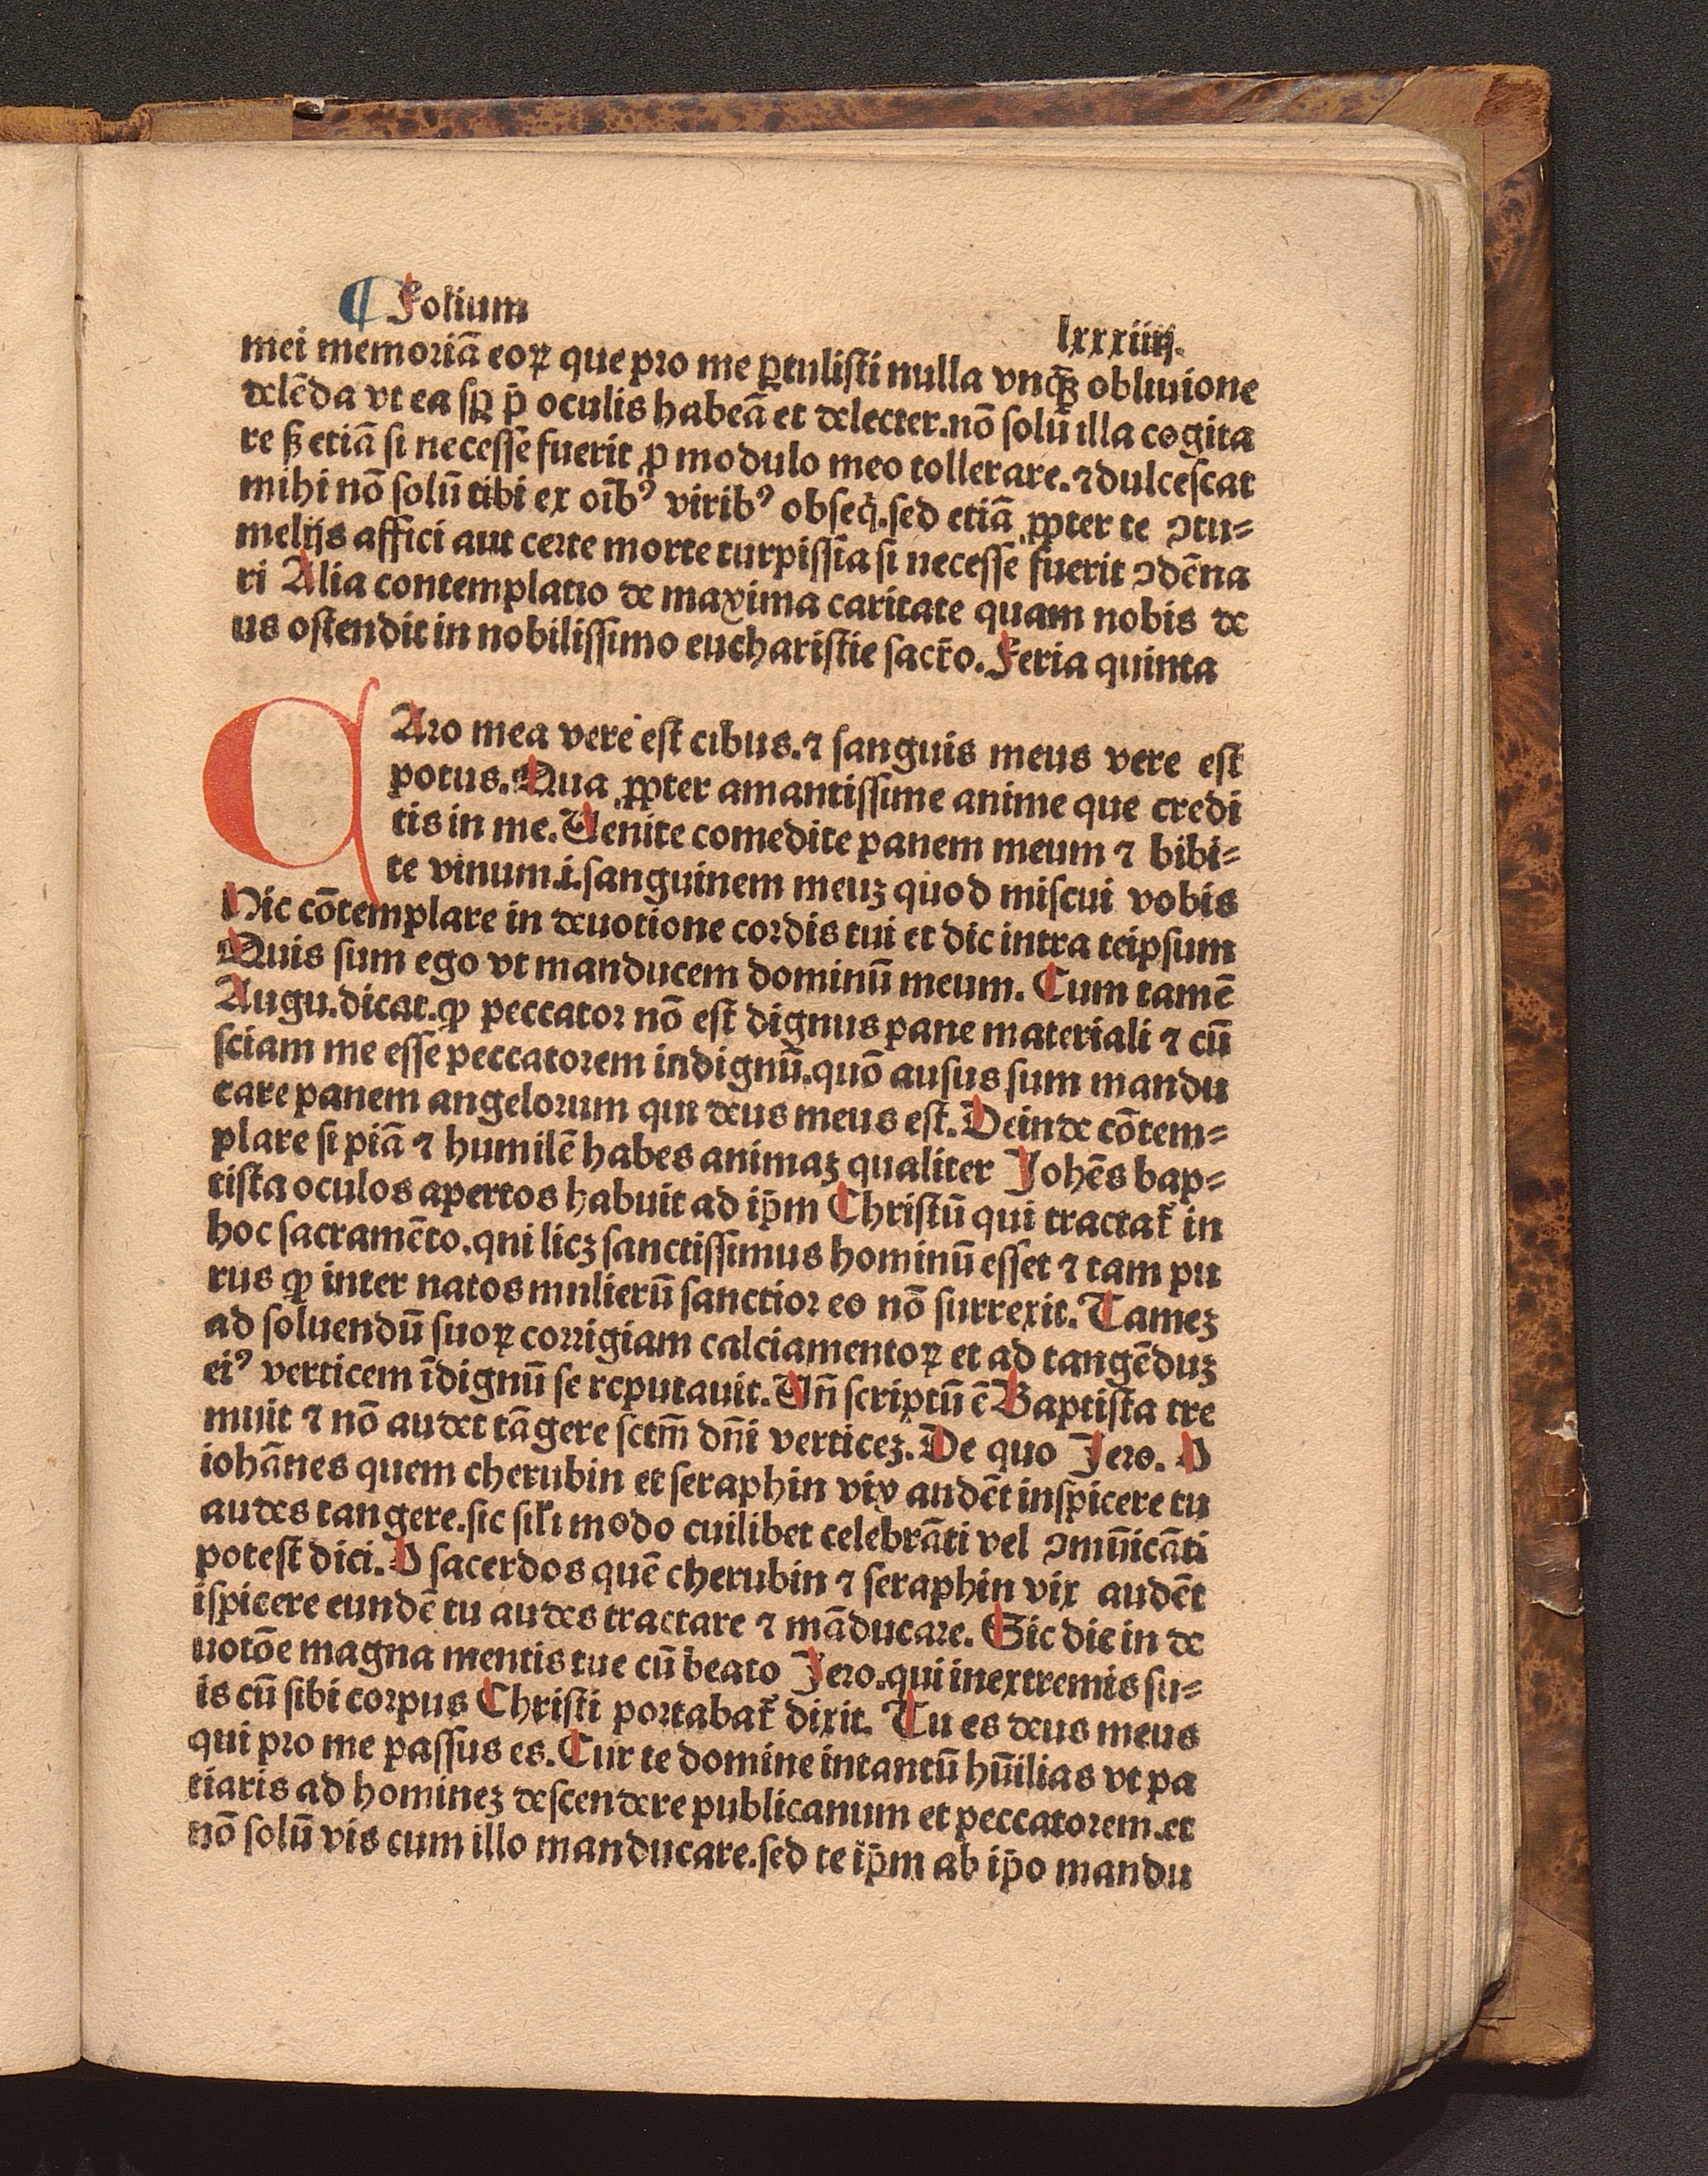 ¶ Folium lxxxiiij.
mei memoriā eoꝝ que pro me ꝑtuliſti nulla vnqꝫ obliuione
delēda vt ea ſꝑ p̄ oculis habeā et delecter.nō ſolū illa cogita
re ſꝫ etiā ſi neceſſe fuerit ꝓ modulo meo tollerare.⁊ dulceſcat
mihi nō ſolū tibi ex oīb⁹ virib⁹ obſeq̄.ſed etiā ꝓpter te ↄtu⸗
melijs affici aut certe morte turpiſſīa ſi neceſſe fuerit ↄdēna
ri Alia contemplatio de maxima caritate quam nobis de
us oſtendit in nobiliſſimo euchariſtie ſacr̄o. Feria quinta
CAro mea vere eſt cibus.⁊ ſanguis meus vere eſt
potus.Qua ꝓpter amantiſſime anime que credi
tis in me.Uenite comedite panem meum ⁊ bibi⸗
te vinum.i.ſanguinem meuꝫ quod miſcui vobis
Hic cōtemplare in deuotione cordis tui et dic intra teipſum
Quis ſum ego vt manducem dominū meum. Cum tamē
Augu.dicat.ꝙ peccator nō eſt dignus pane materiali ⁊ cū
ſciam me eſſe peccatorem indignū.quō auſus ſum mandu
care panem angelorum qui deus meus eſt.Deinde cōtem⸗
plare ſi piā ⁊ humilē habes animaꝫ qualiter Johēs bap⸗
tiſta oculos apertos habuit ad ip̄m Chriſtū qui tractat̄ in
hoc ſacramēto.qni licꝫ ſanctiſſimus hominū eſſet ⁊ tam pu
rus ꝙ inter natos mnlierū ſanctior eo nō ſurrexit. Tameꝫ
ad ſoluendū ſuoꝝ corrigiam calciamentoꝝ et ad tangēduꝫ
ei⁹ verticem īdignū ſe reputauit.Un̄ ſcriptū ē Baptiſta tre
muit ⁊ nō audet tāgere ſctm̄ dn̄i verticeꝫ.De quo Jero. O
iohānes quem cherubin et ſeraphin vix audēt inſpicere tu
audes tangere.ſic ſil̄i modo cuilibet celebrāti vel ↄmūicāti
poteſt dici.O ſacerdos quē cherubin ⁊ ſeraphin vix audēt
iſpicere eundē tu audes tractare ⁊ māducare. Sic dic in de
uotōe magna mentis tue cū beato Jero.qui inextremis ſu⸗
is cū ſibi corpus Chriſti portabat̄ dixit. Tu es deus meus
qui pro me paſſus es.Cur te domine intantū hūilias vt pa
tiaris ad homineꝫ deſcendere publicanum et peccatorem.et
nō ſolū vis cum illo manducare.ſed te ip̄m ab ip̄o mandu